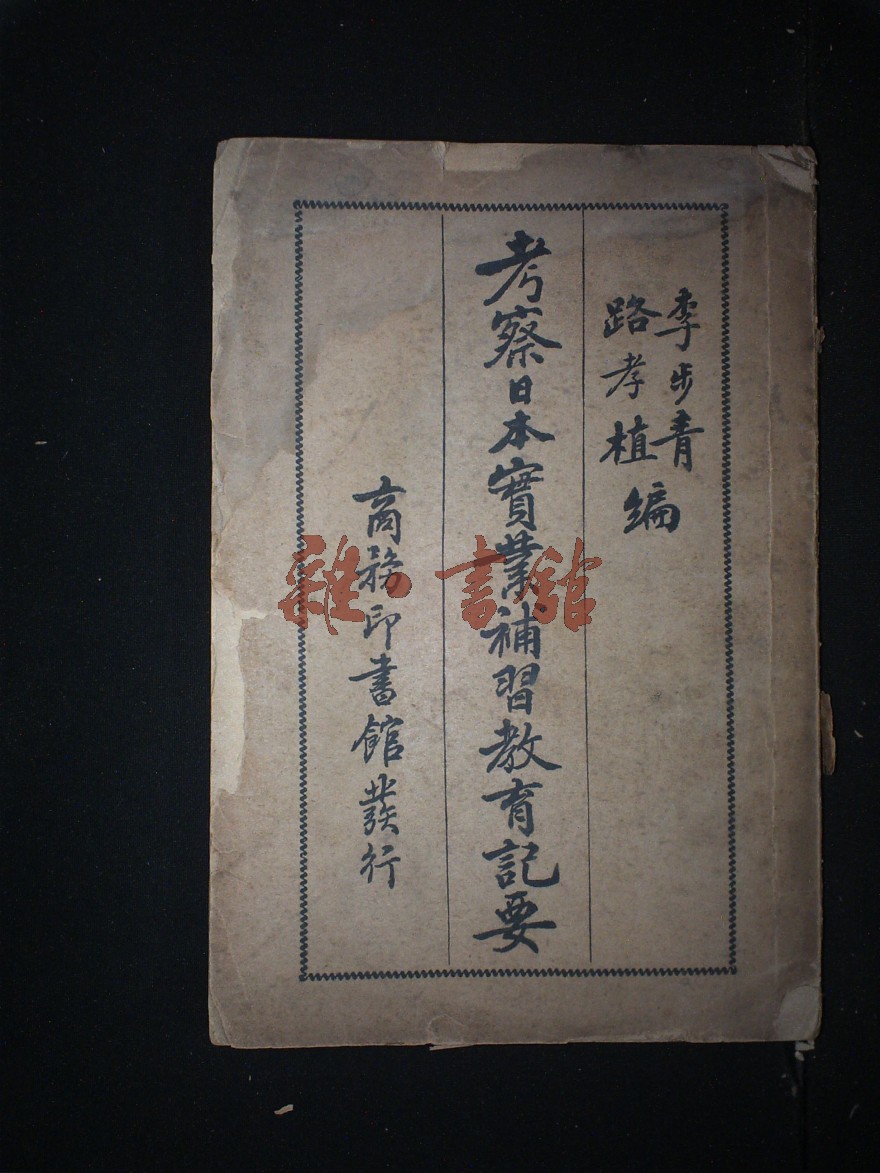 李步青
路孝植
編
考察日本實業補習教育記要
商務印書館發行
雜·書館